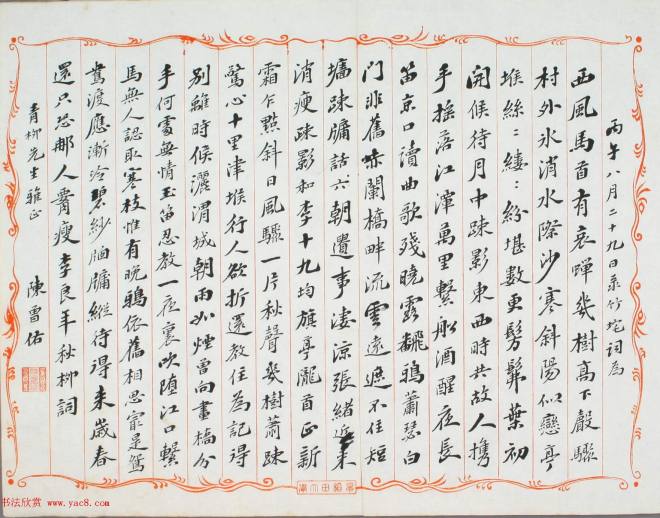 丙午八月二十九日录竹垞词为
西风马首有哀蝉几树高下縠骤
村外水消水際沙寒斜陽似戀亭
堠絲ミ縷ミ紛堪數更髣髴葉初
開候待月中疎影東西時共故人攜
手 摇落江潭萬里繫船酒醒夜長
笛京口瀆曲歌殘曉露翻鴉蕭瑟白
门非舊 赤闌橋畔流雲遠遮不住短
墻疎牖話六朝遺事凄涼張緒近来
消瘦 疎影和李十九均旗亭隴首正新
霜乍點斜日風驟一片秋聲幾樹蕭疎
驚心十里津堠行人欲折還教住為記得
别離時候灑渭城朝雨如煙曾向畫橋分
手 何處無情玉笛忍教一夜裏吹堕江口繫
馬無人認取寒枝惟有晚鴉依舊相思寔是鴛
鴦渡應漸冷碧紗牕牖縱待得来歲春
還只恐那人霄瘦 李良年秋柳詞
青柳先生雅正
陳雷佑
书法欣赏 www.yac8.com